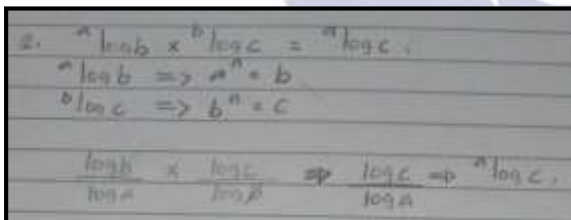 2. ᵃlog b × ᵇlog c = ᵃlog c.
ᵃlog b => aⁿ = b
ᵇlog c => bⁿ = c
log b / log a × log c / log b => log c / log a => ᵃlog c.